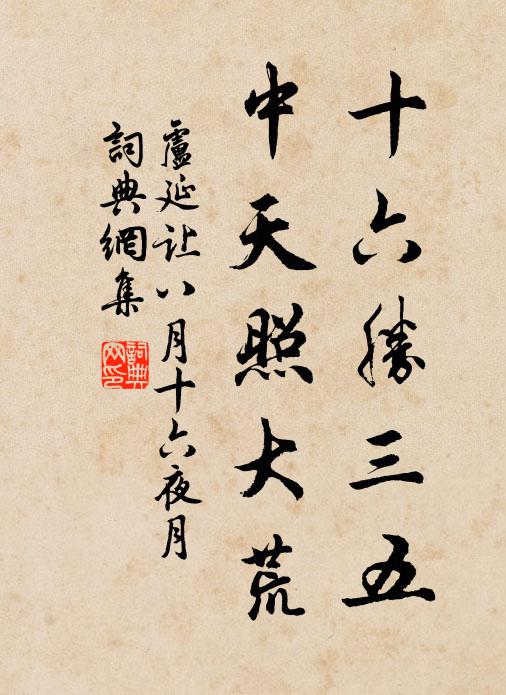 十六勝三五
中天照大荒
盧延让八月十六夜月
詞典網集
詞典网印